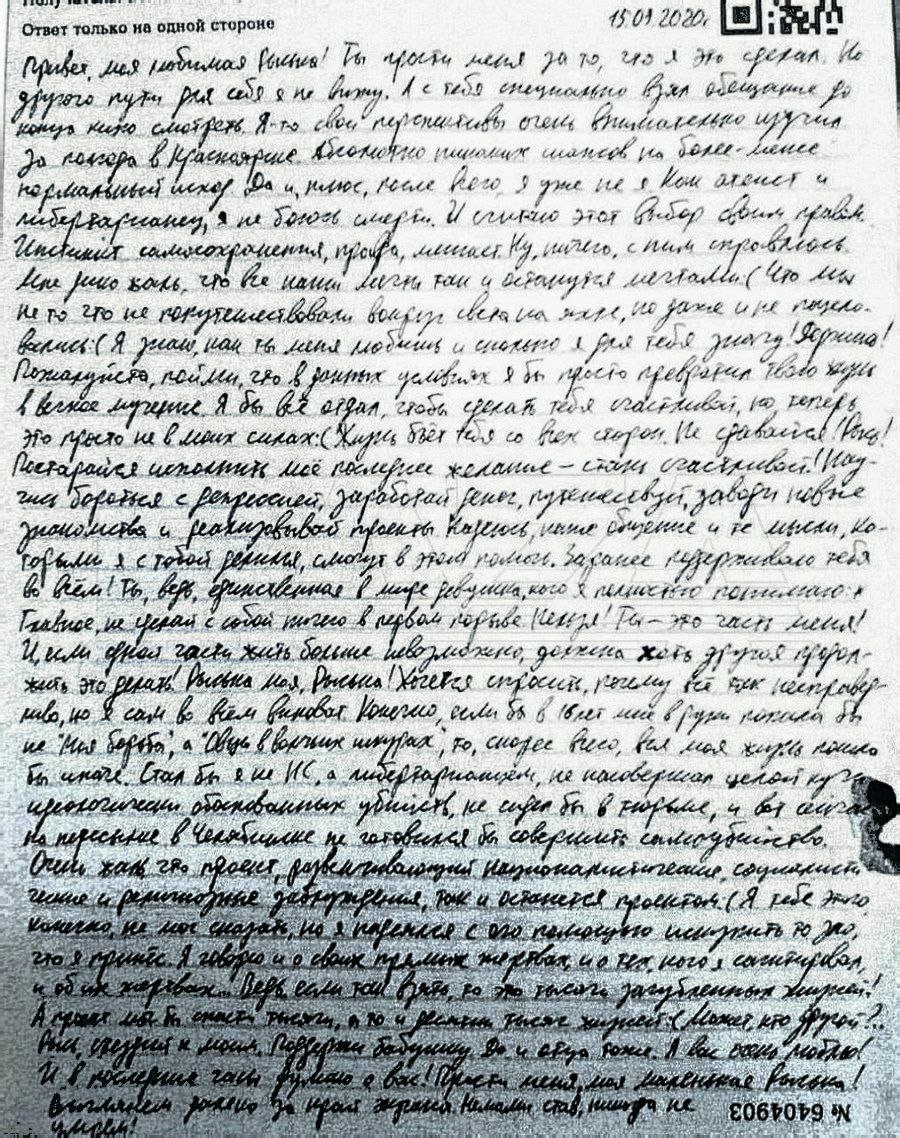 Ответ только на одной стороне
15.09.2020г
Привет, моя любимая Рыська! Ты прости меня за то, что я это сделал. Но
другого пути для себя я не вижу. А с тебя специально взял обещание до
конца кино смотреть. Я-то свои перспективы очень внимательно изучил
за полгода в Красноярске. Абсолютно никаких шансов на более-менее
нормальный исход. Да и, плюс, после всего, я уже не я. Как атеист и
либертарианец, я не боюсь смерти. И считаю этот выбор своим правом.
Инстинкт самосохранения, правда, мешает. Ну, ничего, с ним справлюсь.
Мне жаль, что все наши мечты так и останутся мечтами:( Что мы
не то что не попутешествовали вокруг света на яхте, но даже и не поцело-
вались:( Я знаю, как ты меня любишь и сколько я для тебя значу!
Пожалуйста, пойми, что в данных условиях я бы просто превратил твою жизнь
в вечное мучение. Я бы всё отдал, чтобы сделать тебя счастливой, но теперь
это просто не в моих силах:( Жизнь бьёт тебя со всех сторон. Не сдавайся! Рысь!
Постарайся исполнить моё последнее желание – стань счастливой! Нау-
чись бороться с депрессией, заработай денег, путешествуй, заводи новые
знакомства и реализовывай проекты. Надеюсь, наше общение и те мысли, ко-
торыми я с тобой делился, смогут в этом помочь. Заранее поддерживаю тебя
во всём! Ты, ведь, единственная в мире девушка, кого я полностью понимаю:*
Главное, не сделай с собой ничего в первом порыве. Нельзя! Ты – это часть меня!
И, если одной части жить больше невозможно, должна хоть другая продол-
жить это делать! Рыська моя, Рыська! Хочется спросить, почему всё так несправед-
ливо, но я сам во всём виноват. Конечно, если бы в 16 лет мне в руки попала бы
не "Моя борьба", а "Овцы в волчьих шкурах", то, скорее всего, вся моя жизнь пошла
бы иначе. Стал бы я не НС, а либертарианцем, не насовершал целой кучи
идеологически обоснованных убийств, не сидел бы в тюрьме, и вот сейчас
на пересылке в Челябинске не готовился бы совершить самоубийство.
Очень жаль, что проект, развенчивающий националистические, социалисти-
ческие и религиозные заблуждения, так и останется проектом:( Я тебе этого,
конечно, не мог сказать, но я надеялся с его помощью искупить то зло,
что я принёс. Я говорю и о своих прямых жертвах, и о тех, кого я сагитировал,
и об их жертвах... Ведь если так взять, то это тысячи загубленных жизней!
А проект мог бы спасти тысячи, а то и десятки тысяч жизней:( Может, кто другой?..
Рысь, съезди к моим. Поддержи бабушку. Да и отца тоже. Я вас очень люблю!
И в последние часы думаю о вас! Прости меня, моя маленькая Рыська!
Выглянем далеко за край экрана. Нами став, никогда не
умрем!
№ 6404903